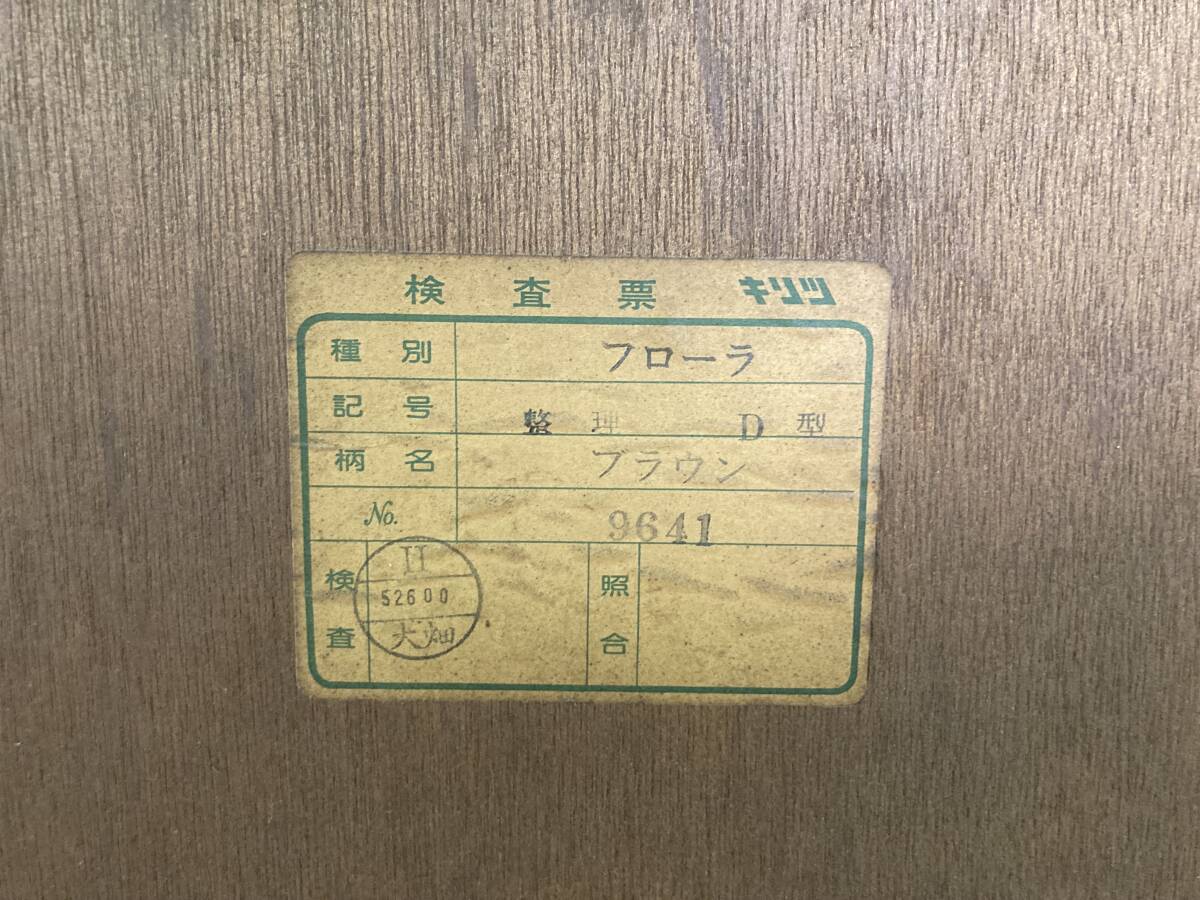 検査票 キリツ
種別 フローラ
記号 整理 D型
柄名 ブラウン
No. 9641
検査 照合
H
52600
大畑